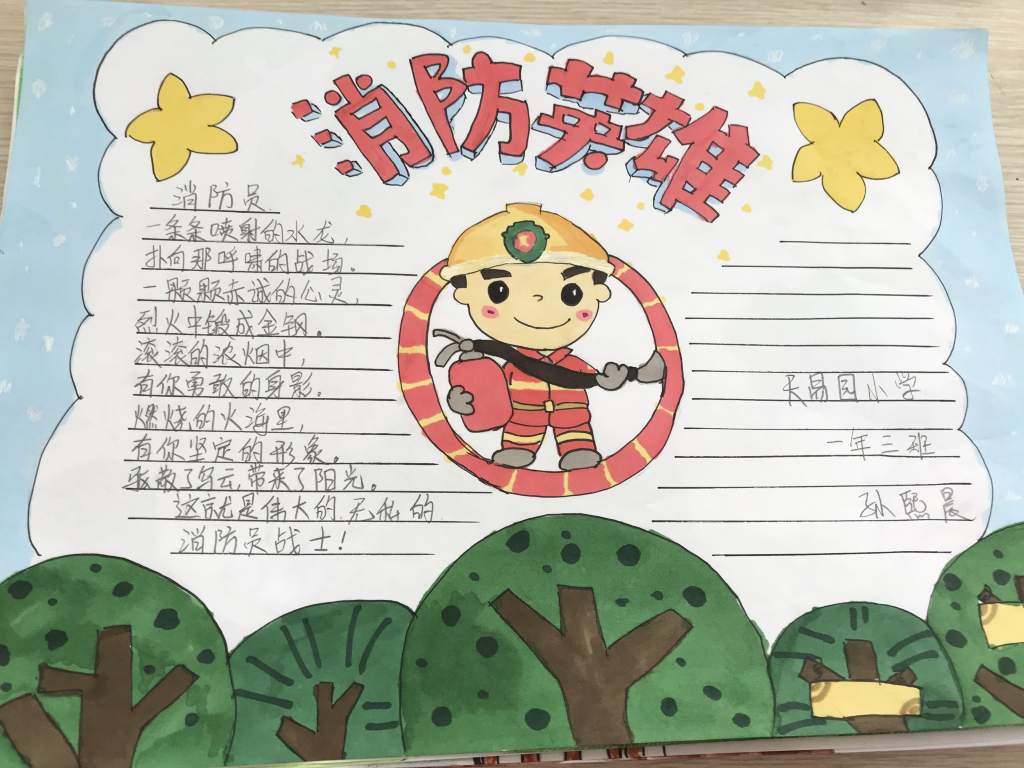 消防英雄
消防员
一条条喷射的水龙，
扑向那呼啸的战场。
一颗颗赤诚的心灵，
烈火中锻成金钢。
滚滚的浓烟中，
有你勇敢的身影。
燃烧的火海里，
有你坚定的形象。
驱散了乌云，带来了阳光。
这就是伟大的，无私的
消防员战士！
天昂园小学
一年三班
孙熙晨